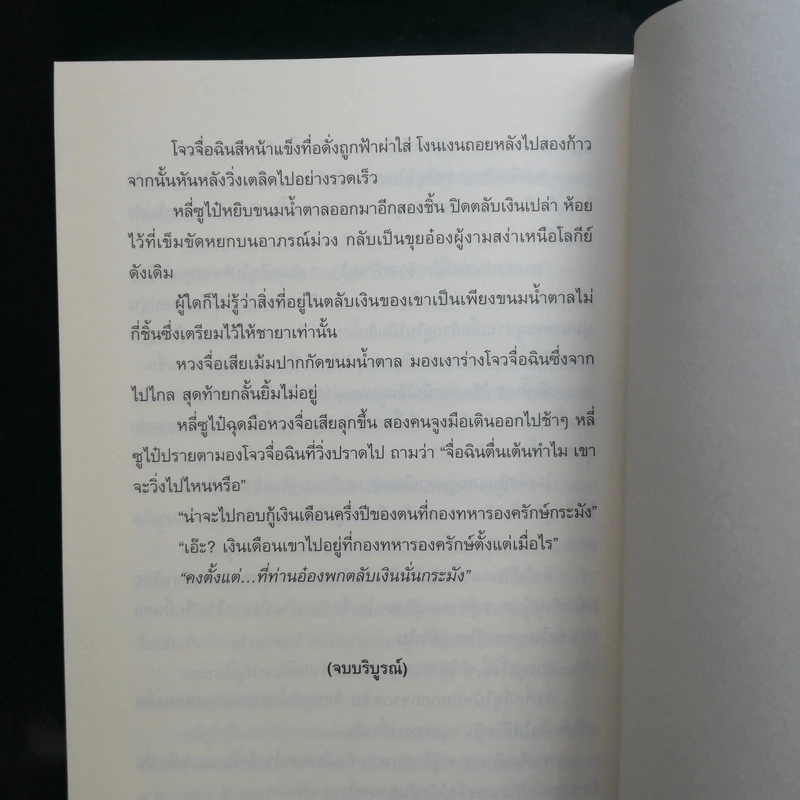 โจวจื่อฉินสีหน้าแข็งทื่อดั่งถูกฟ้าผ่าใส่ โงนเงนถอยหลังไปสองก้าว
จากนั้นหันหลังวิ่งเตลิดไปอย่างรวดเร็ว
หลี่ซูไป๋หยิบขนมน้ำตาลออกมาอีกสองชิ้น ปิดตลับเงินเปล่า ห้อย
ไว้ที่เข็มขัดหยกบนอาภรณ์ม่วง กลับเป็นขุยอ๋องผู้งามสง่าเหนือโลกีย์
ดังเดิม
ผู้ใดก็ไม่รู้ว่าสิ่งที่อยู่ในตลับเงินของเขาเป็นเพียงขนมน้ำตาลไม่
กี่ชิ้นซึ่งเตรียมไว้ให้ชายาเท่านั้น
หวงจื่อเสียเม้มปากกัดขนมน้ำตาล มองเงาร่างโจวจื่อฉินซึ่งจาก
ไปไกล สุดท้ายกลั้นยิ้มไม่อยู่
หลี่ซูไป๋ฉุดมือหวงจื่อเสียลุกขึ้น สองคนจูงมือเดินออกไปช้าๆ หลี่
ซูไป๋ปรายตามองโจวจื่อฉินที่วิ่งปราดไป ถามว่า “จื่อฉินตื่นเต้นทำไม เขา
จะวิ่งไปไหนหรือ”
“น่าจะไปกอบกู้เงินเดือนครึ่งปีของตนที่กองทหารองครักษ์กระมัง”
“เอ๊ะ? เงินเดือนเขาไปอยู่ที่กองทหารองครักษ์ตั้งแต่เมื่อไร”
“คงตั้งแต่...ที่ท่านอ๋องพกตลับเงินนั่นกระมัง”
(จบบริบูรณ์)